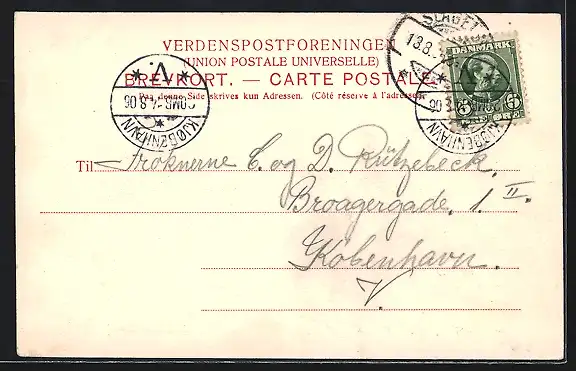 VERDENSPOSTFORENINGEN
(UNION POSTALE UNIVERSELLE)
BREVKORT. — CARTE POSTALE.
Paa denne Side skrives kun Adressen. (Côté réservé à l'adresse)
DANMARK
KJØBENHAVN
V.
KJØBENHAVN
Til Frøknerne C. og D. Rützebeck.
Broagergade. 1 II.
København.
V.